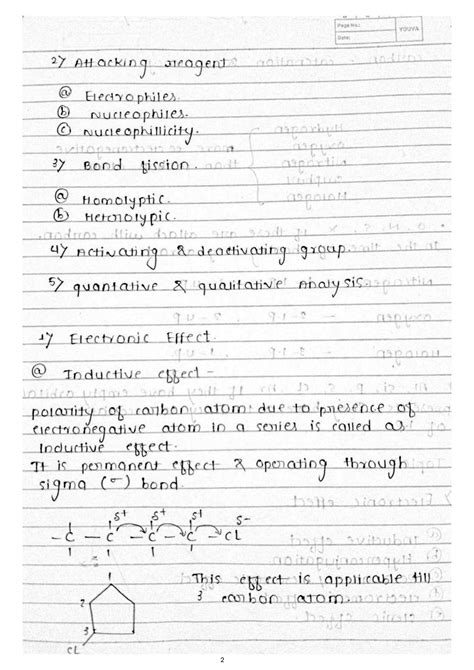 Page No.:
Date:
YOUVA
2) Attacking reagent
(a) Electrophiles.
(b) Nucleophiles.
(c) Nucleophillicity.
3) Bond fission.
(a) Homolyptic.
(b) Heterolypic.
4) Activating & deactivating group.
5) quantative & qualitative Analysis.
1) Electronic Effect.
(a) Inductive effect -
polarity of carbon atom due to presence of
electronegative atom in a series is called as
Inductive effect.
It is permanent effect & operating through
sigma (σ) bond.
δ+ δ+ δ+ δ-
- C - C - C - C - CL
1
2
3
CL
This effect is applicable till
3 carbon atom.
2